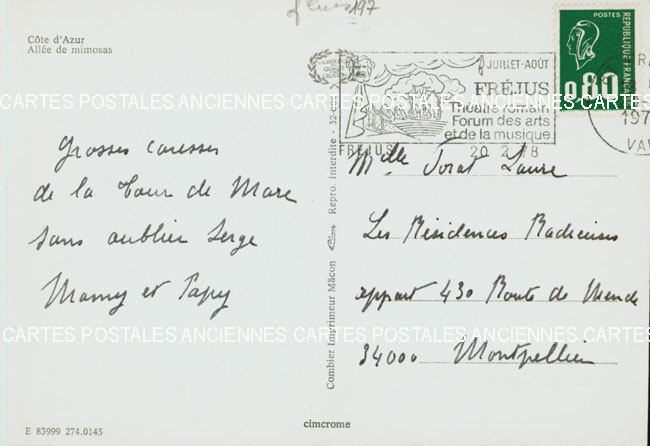 Côte d'Azur
Allée de mimosas
Grosses caresses
de la Tour de Mare
sans oublier Serge
Mamy et Papy
E 83999 274.0145
Combier Imprimeur Mâcon
Repro. Interdite - 32-
cimcrome
JUILLET-AOÛT
FRÉJUS
Théâtre romain
Forum des arts
et de la musique
FREJUS
20 2 78
POSTES
REPUBLIQUE FRANÇAISE
0.80
197
VA
Melle Torat Laure
Les Résidences Radieuses
appart 430 Route de Mende
34000 Montpellier
CARTES POSTALES ANCIENNES CARTES POSTALES ANCIENNES CARTES
CARTES POSTALES ANCIENNES CARTES POSTALES ANCIENNES CARTES